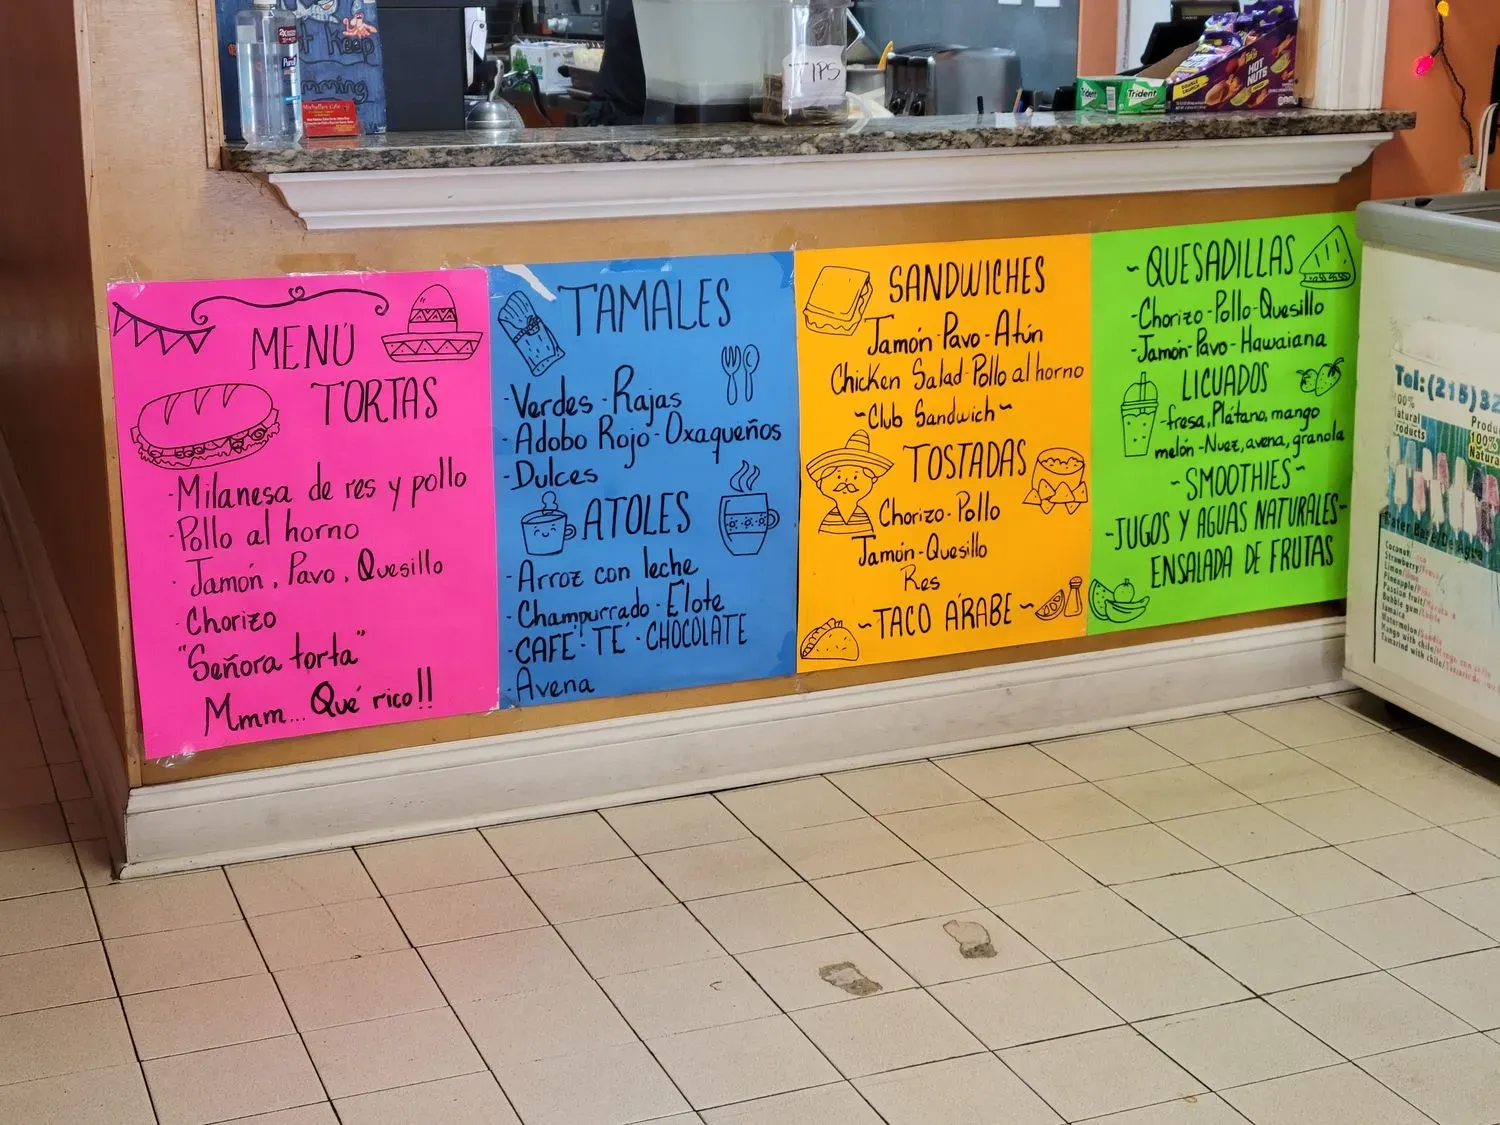 TIPS
Trident
Trident
HOT NUTS
MENÚ
TORTAS
-Milanesa de res y pollo
-Pollo al horno
-Jamón, Pavo, Quesillo
Chorizo
"Señora torta"
Mmm... Qué rico!!
TAMALES
-Verdes -Rajas
-Adobo Rojo-Oxaqueños
-Dulces
ATOLES
-Arroz con leche
-Champurrado-Elote
-CAFÉ-TÉ-CHOCOLATE
-Avena
SANDWICHES
Jamón-Pavo-Atún
Chicken Salad-Pollo al horno
~Club Sandwich~
TOSTADAS
Chorizo-Pollo
Jamón-Quesillo
Res
~TACO ÁRABE~
~QUESADILLAS
-Chorizo-Pollo-Quesillo
-Jamón-Pavo-Hawaiana
LICUADOS
-fresa, Plátano, mango
melón-Nuez, avena, granola
~SMOOTHIES~
-JUGOS Y AGUAS NATURALES-
ENSALADA DE FRUTAS
Tel:(215)
100%
Natural
Products
100%
Natural